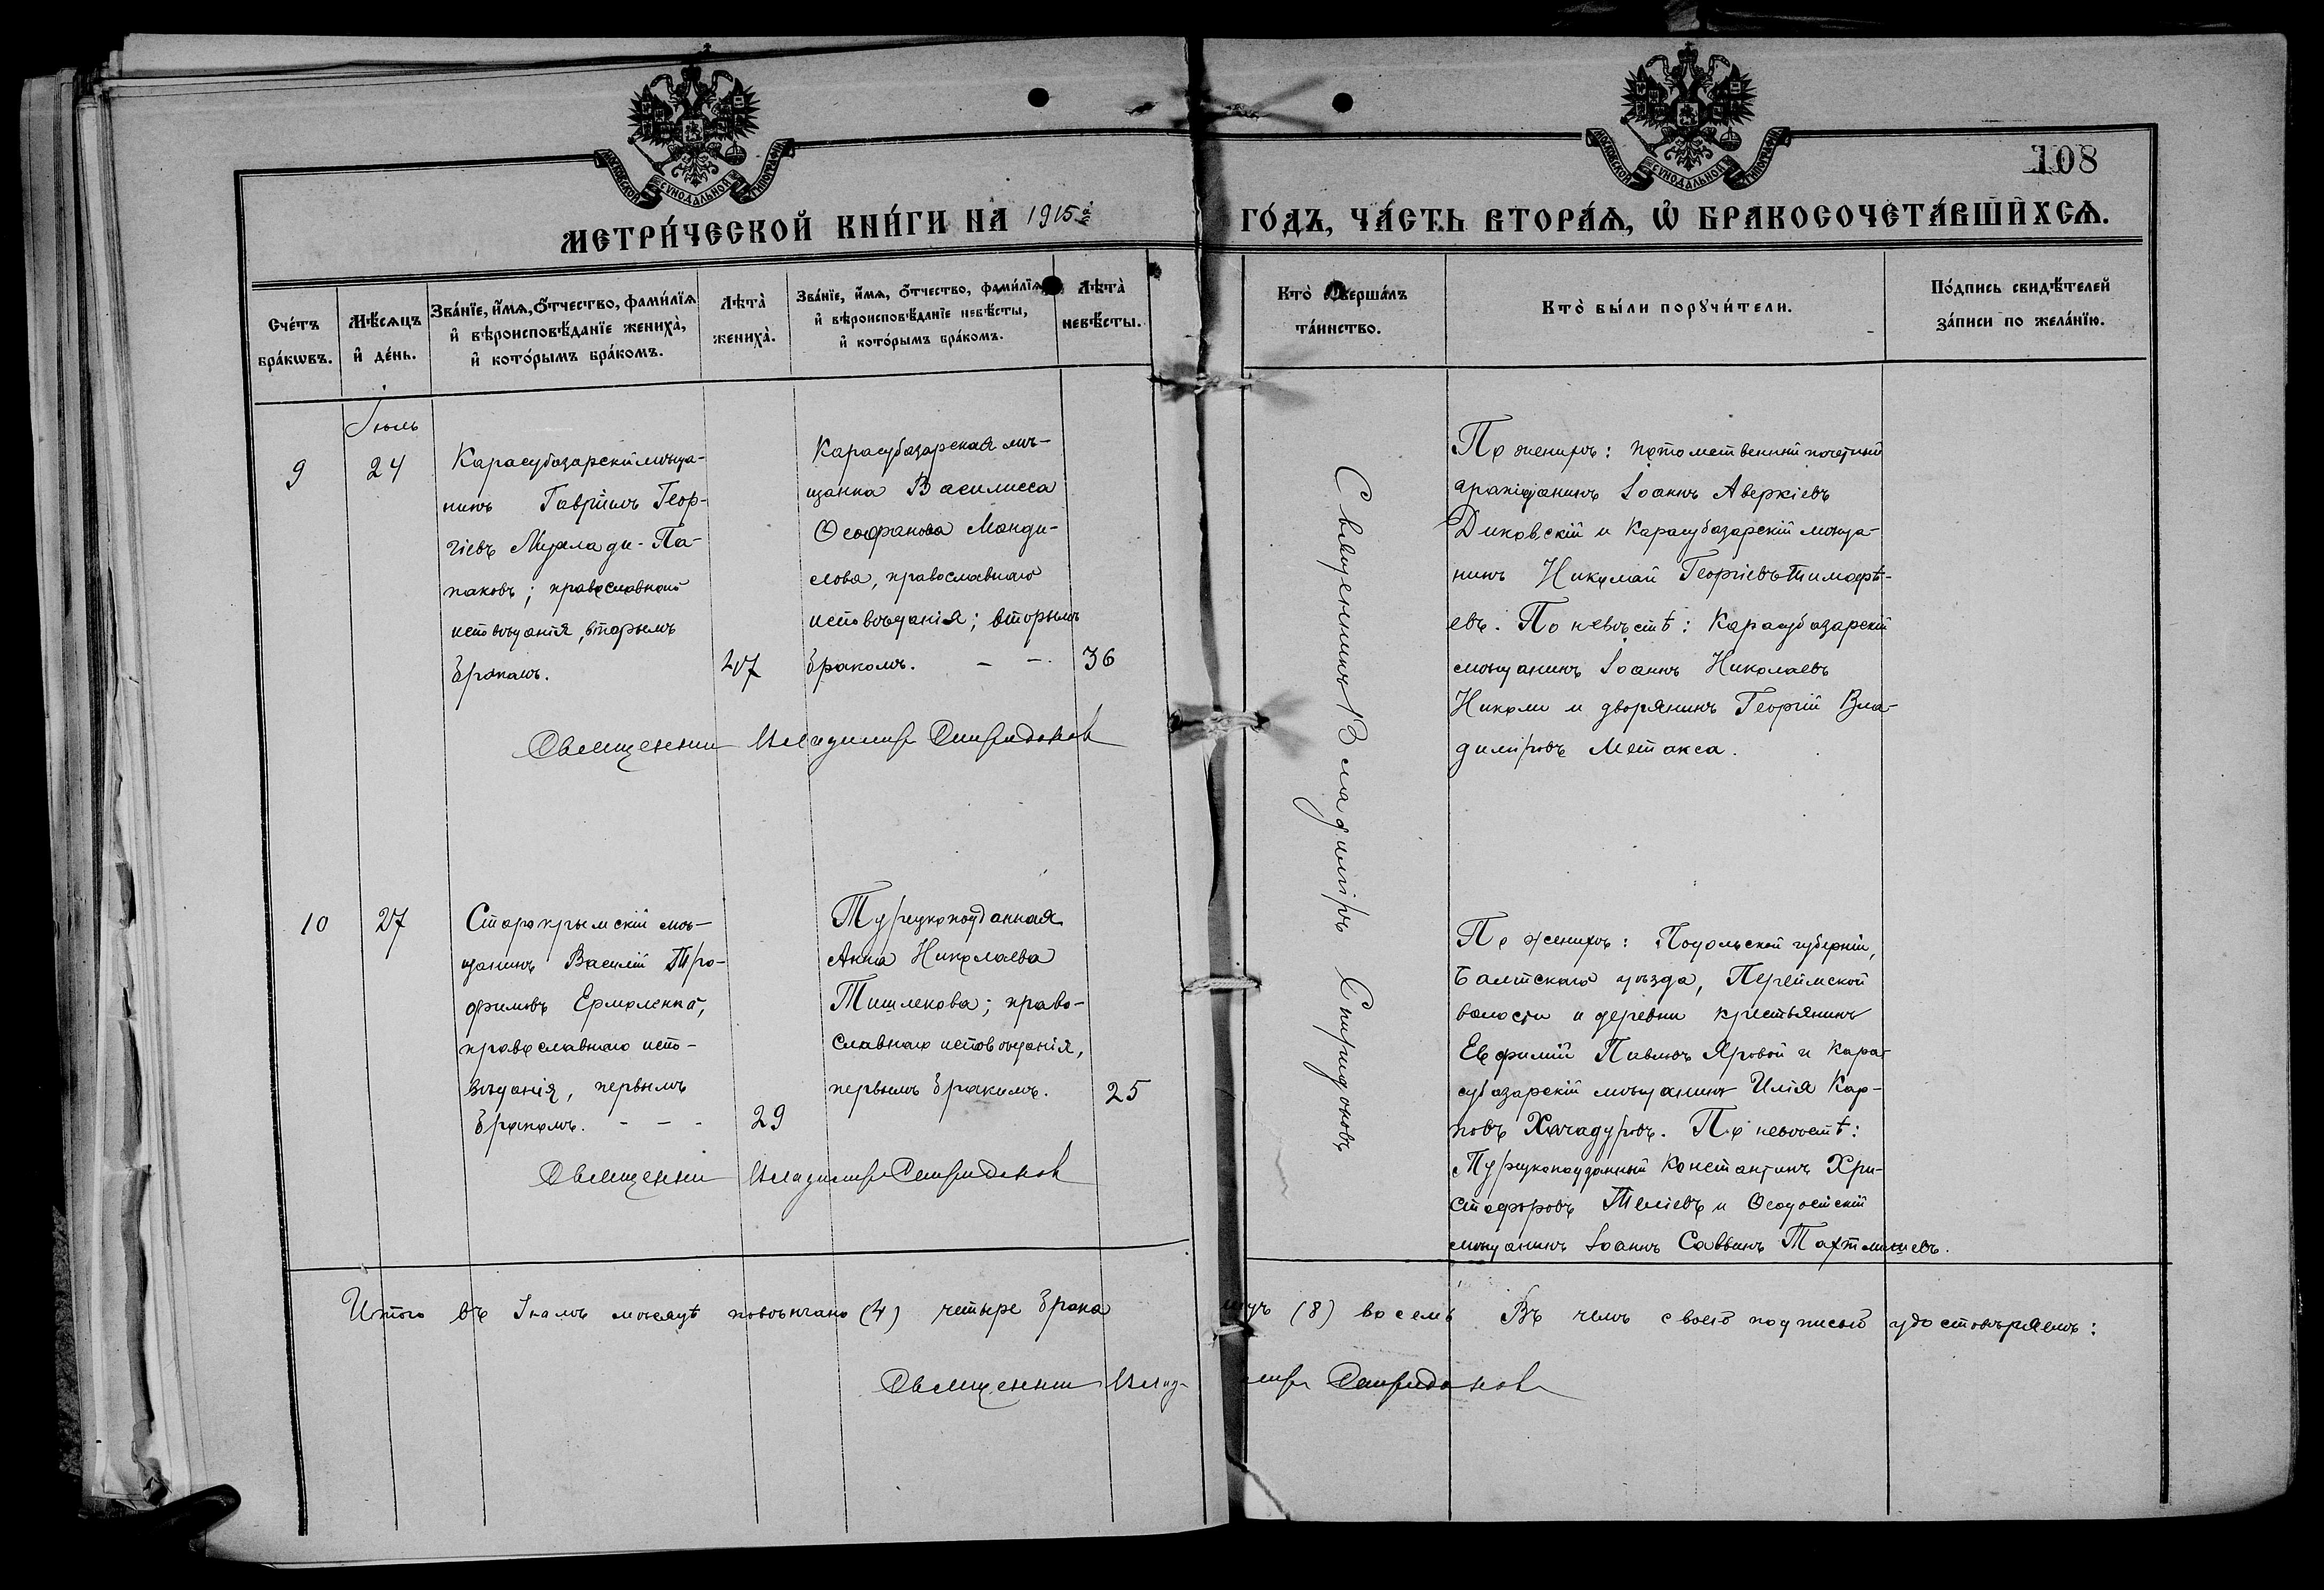 МОСКОВСКОЙ СѴНОДАЛЬНОЙ ТИПОГРАФІИ
МОСКОВСКОЙ СѴНОДАЛЬНОЙ ТИПОГРАФІИ
108
МЕТРИ́ЧЕСКОЙ КНИ́ГИ НА 1915й
ГО́ДЪ, ЧА́СТЬ ВТОРА́Ѧ, Ѽ БРАКОСОЧЕТА́ВШИХСѦ.
Сче́тъ бра́кѡвъ.
Мѣ́сѧцъ и҆ де́нь.
Зва́нїе, и҆́мѧ, ѻ҆́тчество, фами́лїѧ
и҆ вѣроисповѣ́данїе жениха̀,
и҆ кото́рымъ бра́комъ.
Лѣта̀ жениха̀.
Зва́нїе, и҆́мѧ, ѻ҆́тчество, фами́лїѧ
и҆ вѣроисповѣ́данїе невѣ́сты,
и҆ кото́рымъ бра́комъ.
Лѣта̀ невѣ́сты.
Кто̀ соверша́лъ та́инство.
Кто̀ бы́ли порꙋчи́тели.
По́дпись свидѣ́телей
за́писи по жела́нїю.
Іюль
9
24
Карасубазарскій мѣща-
нинъ Гавріилъ Геор-
гіевъ
Па-
паковъ; православнаго
исповѣданія, вторымъ
бракомъ.
47
Карасубазарская мѣ-
щанка Василисса
Ѳеофанова Манди-
лова, православнаго
исповѣданія; вторымъ
бракомъ. – –
36
Священникъ Владиміръ Спиридоновъ
По женихѣ: потомственный почетный
гражданинъ Іоаннъ Аверкіевъ
Диковскій и Карасубазарскій мѣща-
нинъ Николай Георгіевъ Тимофѣ-
евъ. По невѣстѣ: Карасубазарскій
мѣщанинъ Іоаннъ Николаевъ
Николи и дворянинъ Георгій Вла-
диміровъ Метакса.
Священникъ Владиміръ Спиридоновъ
10
27
Старокрымскій мѣ-
щанинъ Василій Тро-
фимовъ Ермоленко,
православнаго испо-
вѣданія, первымъ
бракомъ. – – –
29
Турецкоподданная
Анна Николаева
Тишлекова; право-
славнаго исповѣданія,
первымъ бракомъ.
25
Священникъ Владиміръ Спиридоновъ
По женихѣ: Подольской губерніи,
Балтскаго уѣзда, Перейлской
волости и деревни крестьянинъ
Евфимій Павловъ Яровой и Кара-
субазарскій мѣщанинъ Илія Кар-
повъ Хачадуровъ. По невѣстѣ:
Турецкоподданный Константинъ Хри-
стофоровъ Теліевъ и Ѳеодосійскій
мѣщанинъ Іоаннъ Саввинъ
Итого въ Іюлѣ мѣсяцѣ повѣнчано (4) четыре брака
(8) восемь Въ чемъ своею подписью удостовѣряемъ:
Священникъ Владиміръ Спиридоновъ